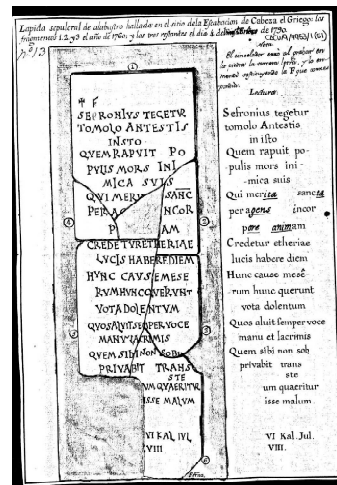 Lapida sepulcral de alabastro hallada en el sitio de la Estabacion de Cabeza el Griego: los
fragmentos 1. 2. y 3 el año de 1760; y los tres restantes el dia de de 1790.
nº 13
CAI-CU/9/3953/1(61)
Nota
El
la
Lectura.
①
SEFRONIVS TEGETVR
TOMOLO ANTESTIS
IN STO
QVEM RAPVIT PO
PVLIS MORS INI
MICA SVIS
QVI MERI SANC
PERA NCOR
P AM
CREDETVR ETHERIAE
LVCIS HABERE DIEM
HVNC CAVSE MESE
RVM HVNC QVERVNT
VOTA DOLENTVM
QVOS ALVIT SEMPER VOCE
MANV LACRIMIS
QVEM SIBI NON SOB
PRIVABIT TRANS
STE
VM QVAERITVR
ISSE MALVM
VI KAL IVL
VIII
Sefronius tegetur
tomolo Antestis
in isto
Quem rapuit po-
pulis mors ini-
-mica suis
Qui merita sancta
per agens incor
pore animam
Credetur etheriae
lucis habere diem
Hunc cause mese
rum hunc querunt
vota dolentum
Quos aluit semper voce
manu et lacrimis
Quem sibi non sob
privabit trans
ste
um quaeritur
isse malum.
VI Kal. Jul.
VIII.